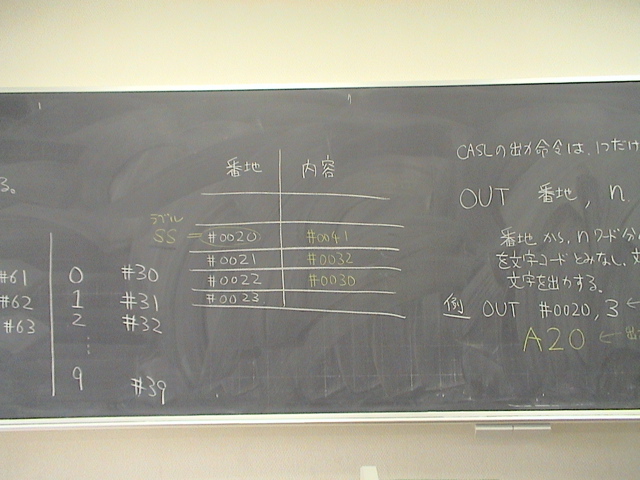 る。
#61
#62
#63
0 #30
1 #31
2 #32
⋮
9 #39
番地 内容
ラベル
SS = #0020 #0041
#0021 #0032
#0022 #0030
#0023
CASLの出力命令は、1つだけ
OUT 番地, n
番地から、nワード分の
を文字コードとみなし、文
文字を出力する。
例 OUT #0020, 3 ←
A20 ← 出